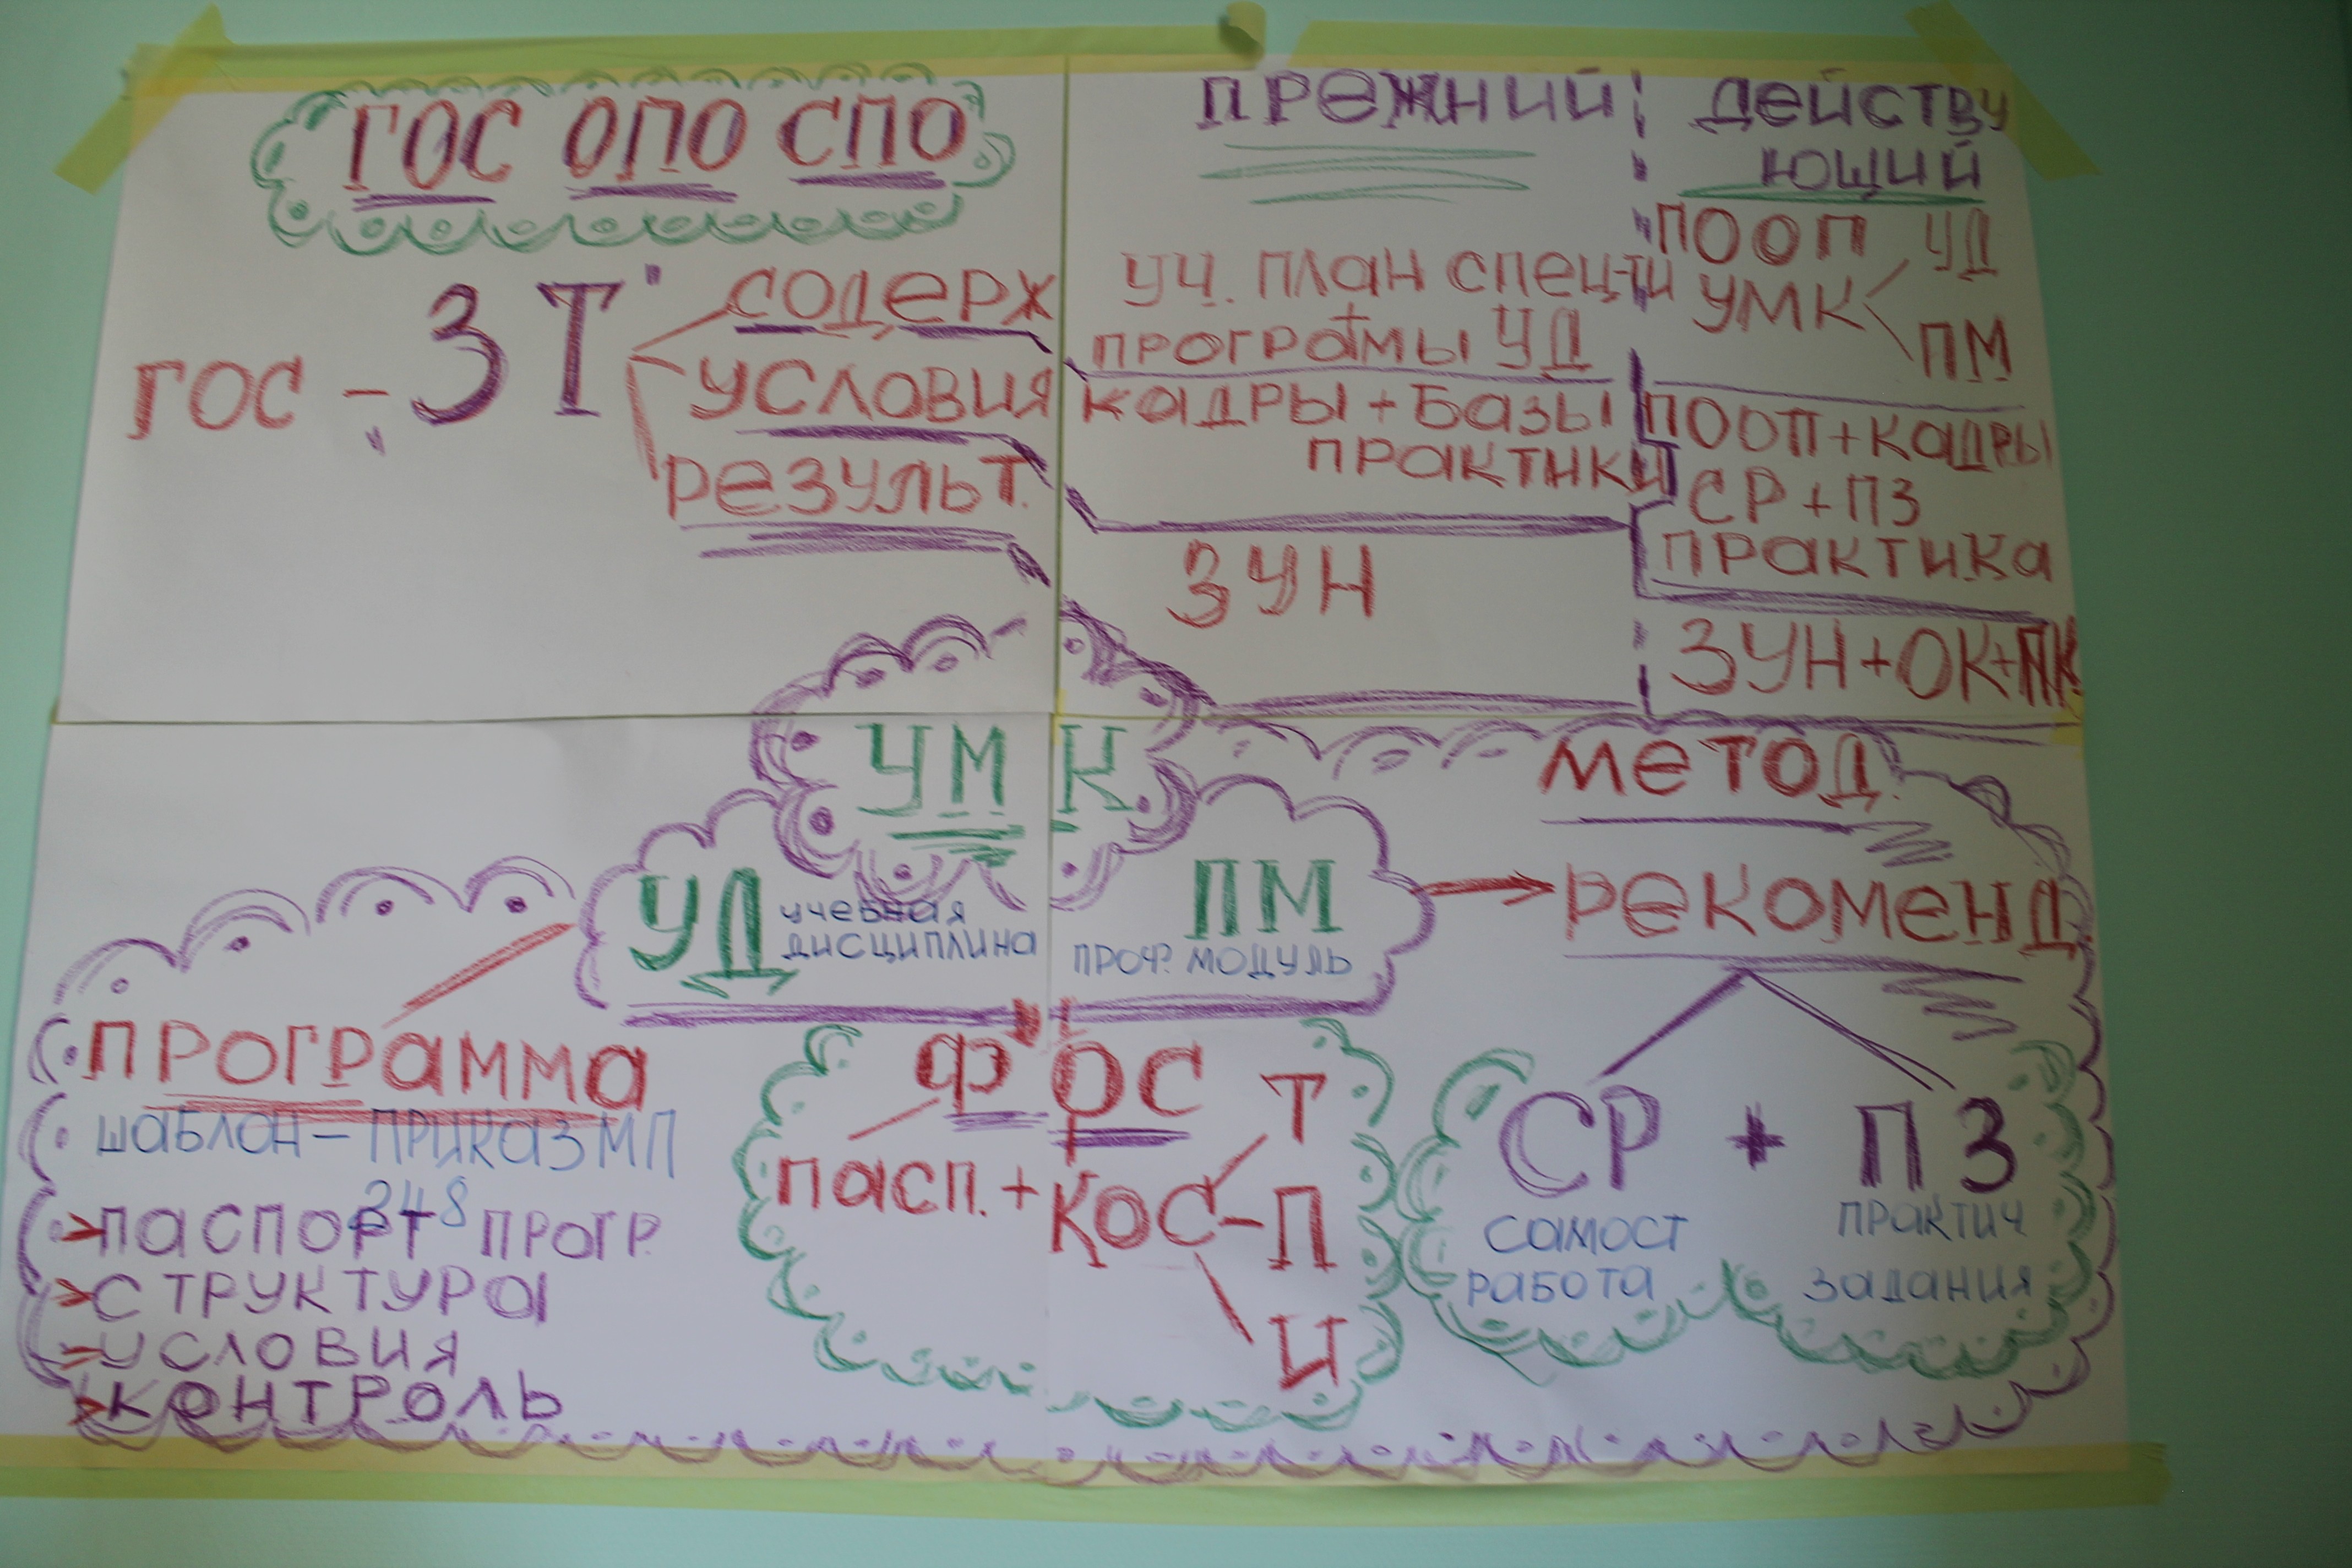 ГОС ОПО СПО
ГОС - 3 Т
СОДЕРЖ
УСЛОВИЯ
РЕЗУЛЬТ.
ПРЕЖНИЙ
УЧ. ПЛАН СПЕЦ-ТИ
+
ПРОГРАМЫ УД
КАДРЫ + БАЗЫ
ПРАКТИКИ
ЗУН
ДЕЙСТВУ
ЮЩИЙ
ПООП
УМК
УД
ПМ
ПООП + КАДРЫ
СР + ПЗ
ПРАКТИКА
ЗУН + ОК + ПК
УМК
УД учебная
дисциплина
ПМ
ПРОФ. МОДУЛЬ
ПРОГРАММА
ШАБЛОН - ПРИКАЗ МП
348
ПАСПОРТ ПРОГР.
СТРУКТУРА
УСЛОВИЯ
КОНТРОЛЬ
ФОС
ПАСП. + КОС - П
Т
И
МЕТОД.
РЕКОМЕНД
СР + ПЗ
САМОСТ
РАБОТА
ПРАКТИЧ
ЗАДАНИЯ